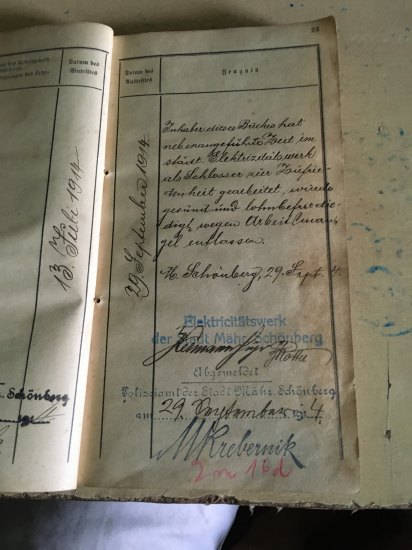 Datum des
Eintrittes
13. Juli 1914
Schönberg
23
Datum des
Austrittes
Zeugnis
29 September 1914
Inhaber dieses Buches hat
nebenangeführte Zeit im
städt. Elektrizitätswerk
als Schlosser zur Zufrie-
denheit gearbeitet, wurde
gesund und lohnbefriedi-
digt wegen Arbeitsman-
gel entlassen.
M. Schönberg, 29. Sept. 14.
Elektricitätswerk
der Stadt Mähr. Schönberg
Abgemeldet
Polizeiamt der Stadt Mähr. Schönberg
am 29. September 1914
M Krebernik